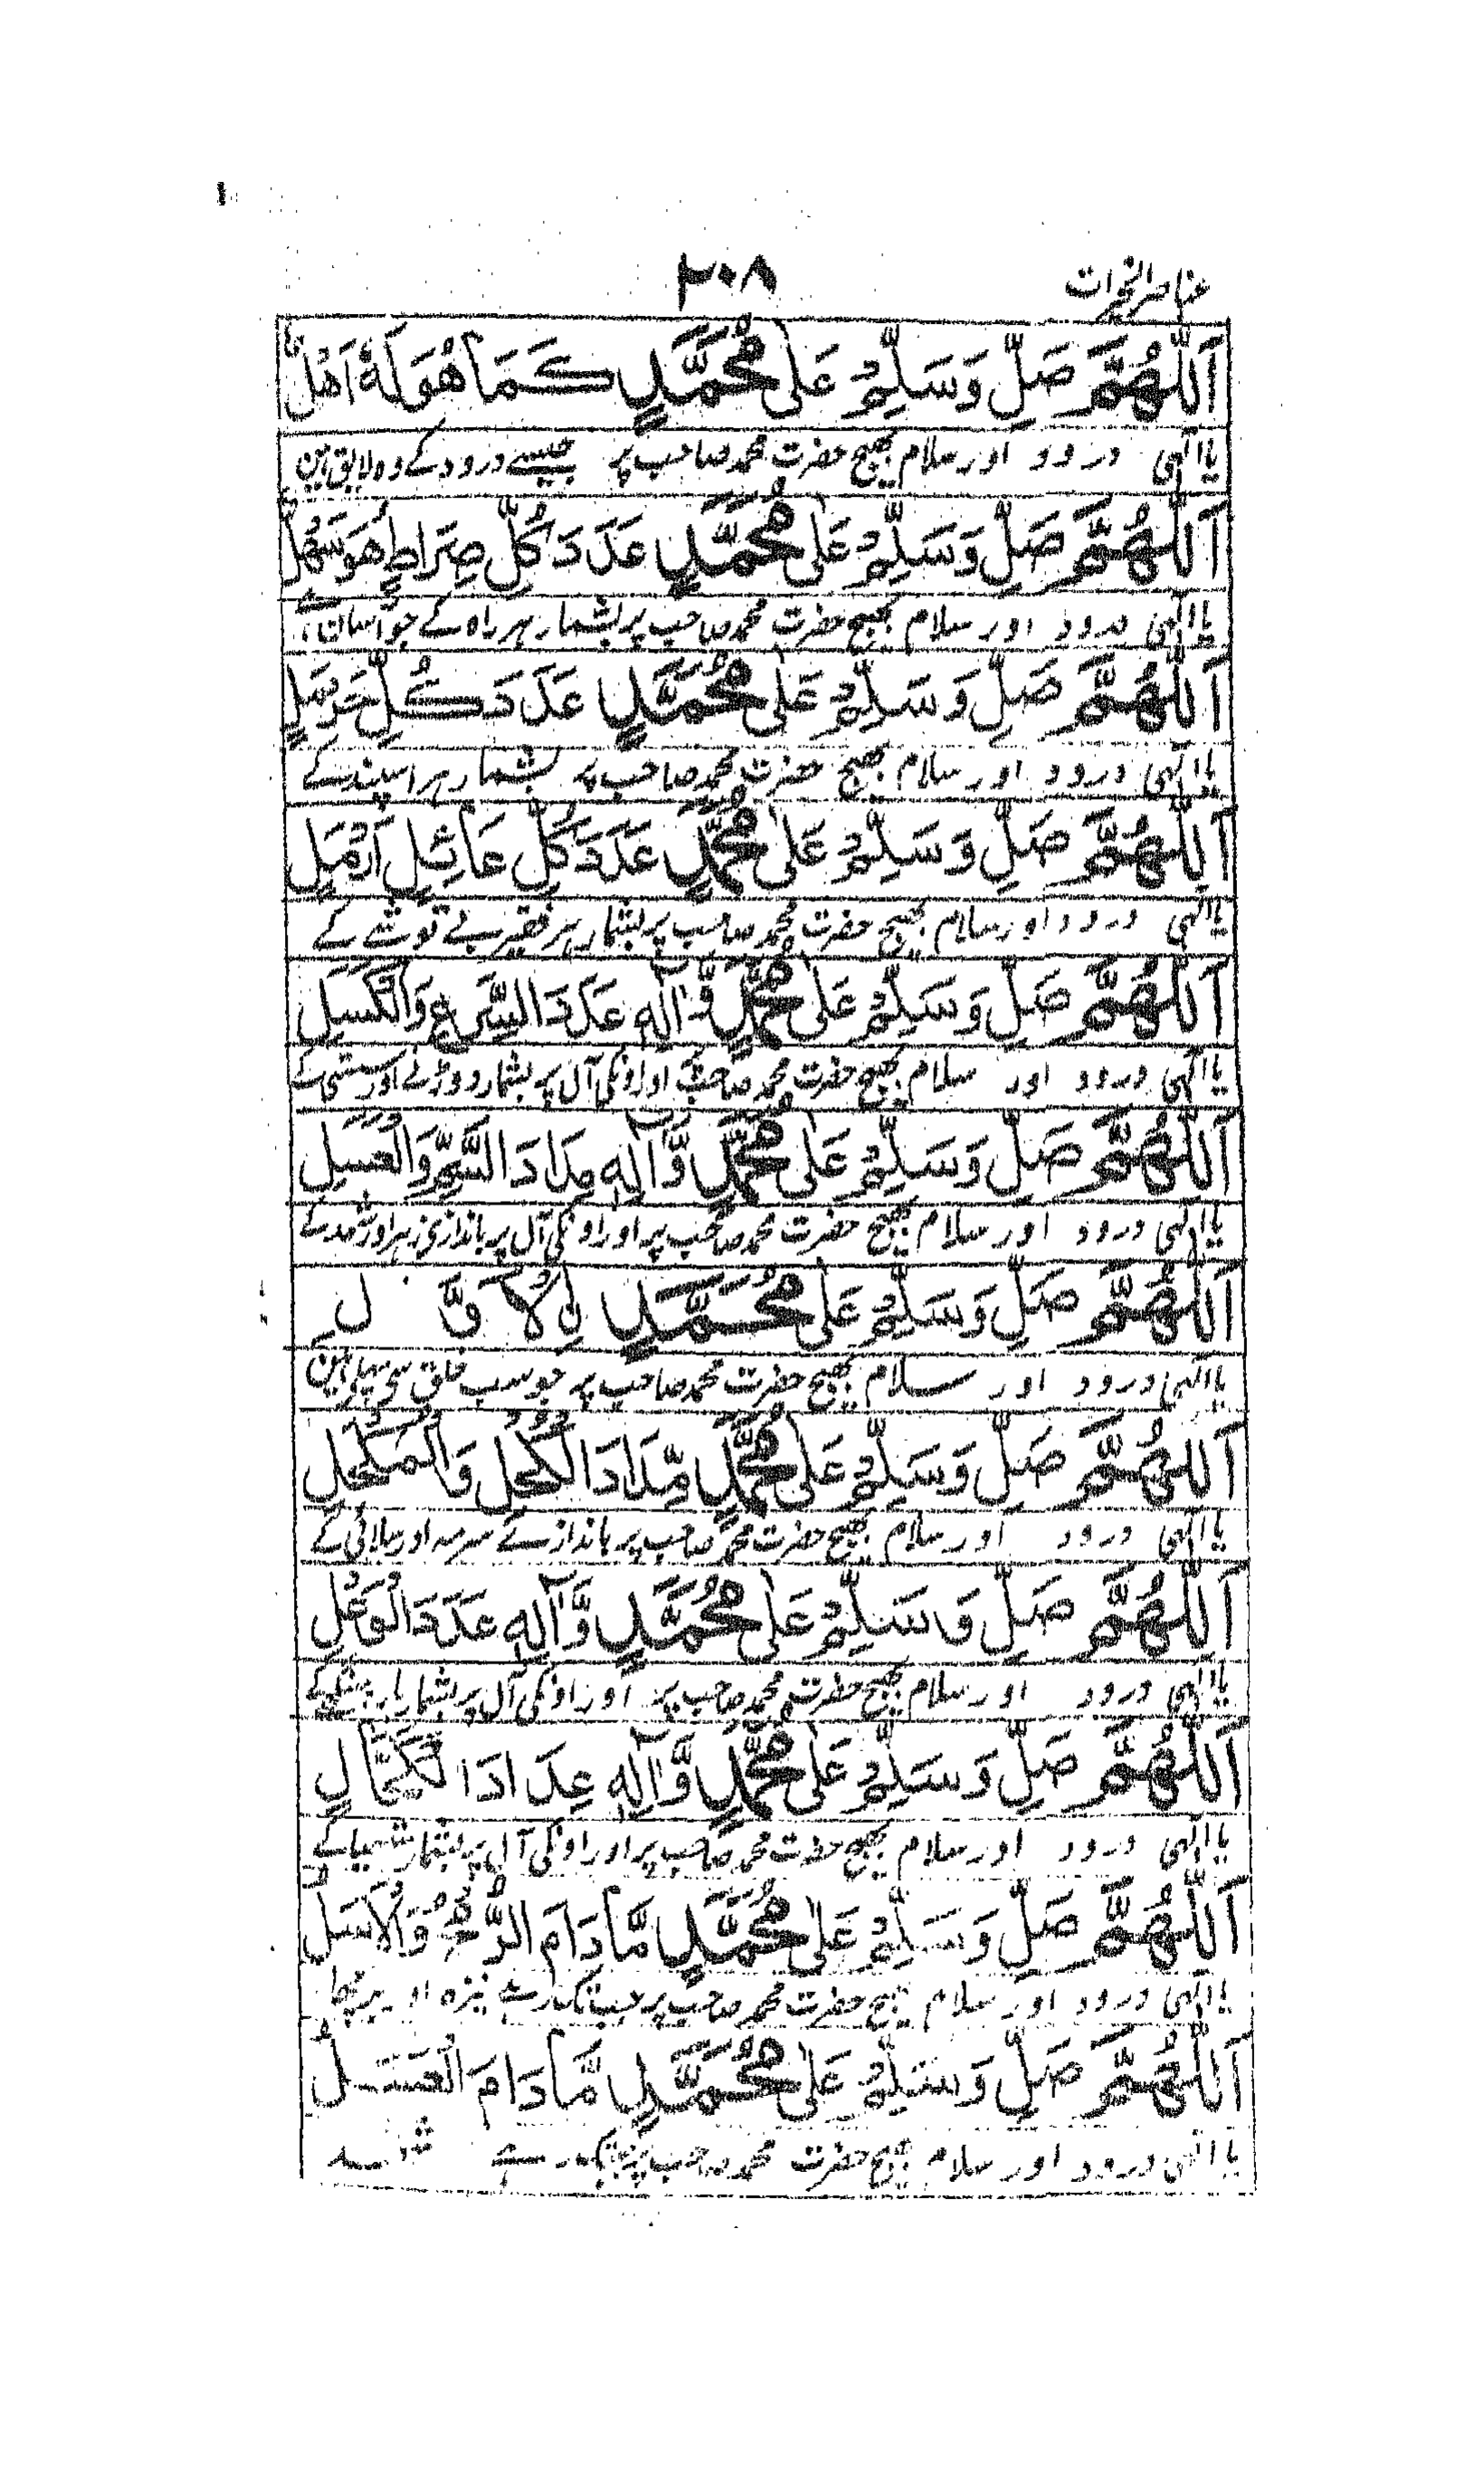 عناصر الخیرات
۳۰۸
اَللّٰهُمَّ صَلِّ وَسَلِّمْ عَلٰی مُحَمَّدٍ كَمَا هُوَ لَهٗ اَهْلٌ
یا الٰہی درود اور سلام بھیج حضرت محمد صاحب پر جیسے درود کے وہ لایق ہین
اَللّٰهُمَّ صَلِّ وَسَلِّمْ عَلٰی مُحَمَّدٍ عَدَدَ كُلِّ صِرَاطٍ هُوَ سَهْلٌ
یا الٰہی درود اور سلام بھیج حضرت محمد صاحب پر بشمار ہر راہ کے جو آسان ہے
اَللّٰهُمَّ صَلِّ وَسَلِّمْ عَلٰی مُحَمَّدٍ عَدَدَ كُلِّ حَرْمَلٍ
یا الٰہی درود اور سلام بھیج حضرت محمد صاحب پر بشمار ہر اسپند کے
اَللّٰهُمَّ صَلِّ وَسَلِّمْ عَلٰی مُحَمَّدٍ عَدَدَ كُلِّ عَائِلٍ اَرْمَلٍ
یا الٰہی درود اور سلام بھیج حضرت محمد صاحب پر بشمار ہر فقیر بے توشے کے
اَللّٰهُمَّ صَلِّ وَسَلِّمْ عَلٰی مُحَمَّدٍ وَّاٰلِهٖ عَدَدَ السَّرَعِ وَالْكَسَلِ
یا الٰہی درود اور سلام بھیج حضرت محمد صاحب اور اونکی آل پر بشمار دوڑنے اور سستی کے
اَللّٰهُمَّ صَلِّ وَسَلِّمْ عَلٰی مُحَمَّدٍ وَّاٰلِهٖ مِدَادَ السَّمِّ وَالْعَسَلِ
یا الٰہی درود اور سلام بھیج حضرت محمد صاحب پر اور اونکی آل پر باندازی زہر اور شہد کے
اَللّٰهُمَّ صَلِّ وَسَلِّمْ عَلٰی مُحَمَّدٍ
یا الٰہی درود اور سلام بھیج حضرت محمد صاحب پر جو سب خلق سی پہلی ہین
اَللّٰهُمَّ صَلِّ وَسَلِّمْ عَلٰی مُحَمَّدٍ مِّدَادَ الْكُحْلِ وَالْمُكْحُلِ
یا الٰہی درود اور سلام بھیج حضرت محمد صاحب پر باندازے سرمہ اور سلائی کے
اَللّٰهُمَّ صَلِّ وَسَلِّمْ عَلٰی مُحَمَّدٍ وَّاٰلِهٖ عَدَدَ الْوَعْلِ
یا الٰہی درود اور سلام بھیج حضرت محمد صاحب پر اور اونکی آل پر بشمار
اَللّٰهُمَّ صَلِّ وَسَلِّمْ عَلٰی مُحَمَّدٍ وَّاٰلِهٖ عِدَادَ الْكَحَّالِ
یا الٰہی درود اور سلام بھیج حضرت محمد صاحب پر اور اونکی آل پر بشمار
اَللّٰهُمَّ صَلِّ وَسَلِّمْ عَلٰی مُحَمَّدٍ مَّا دَامَ الرُّمْحُ وَالْاَسَلُ
یا الٰہی درود اور سلام بھیج حضرت محمد صاحب پر جب تک رہے نیزہ اور برچھا
اَللّٰهُمَّ صَلِّ وَسَلِّمْ عَلٰی مُحَمَّدٍ مَّا دَامَ الْعَسَلُ
یا الٰہی درود اور سلام بھیج حضرت محمد صاحب پر جبتک رہے شہد